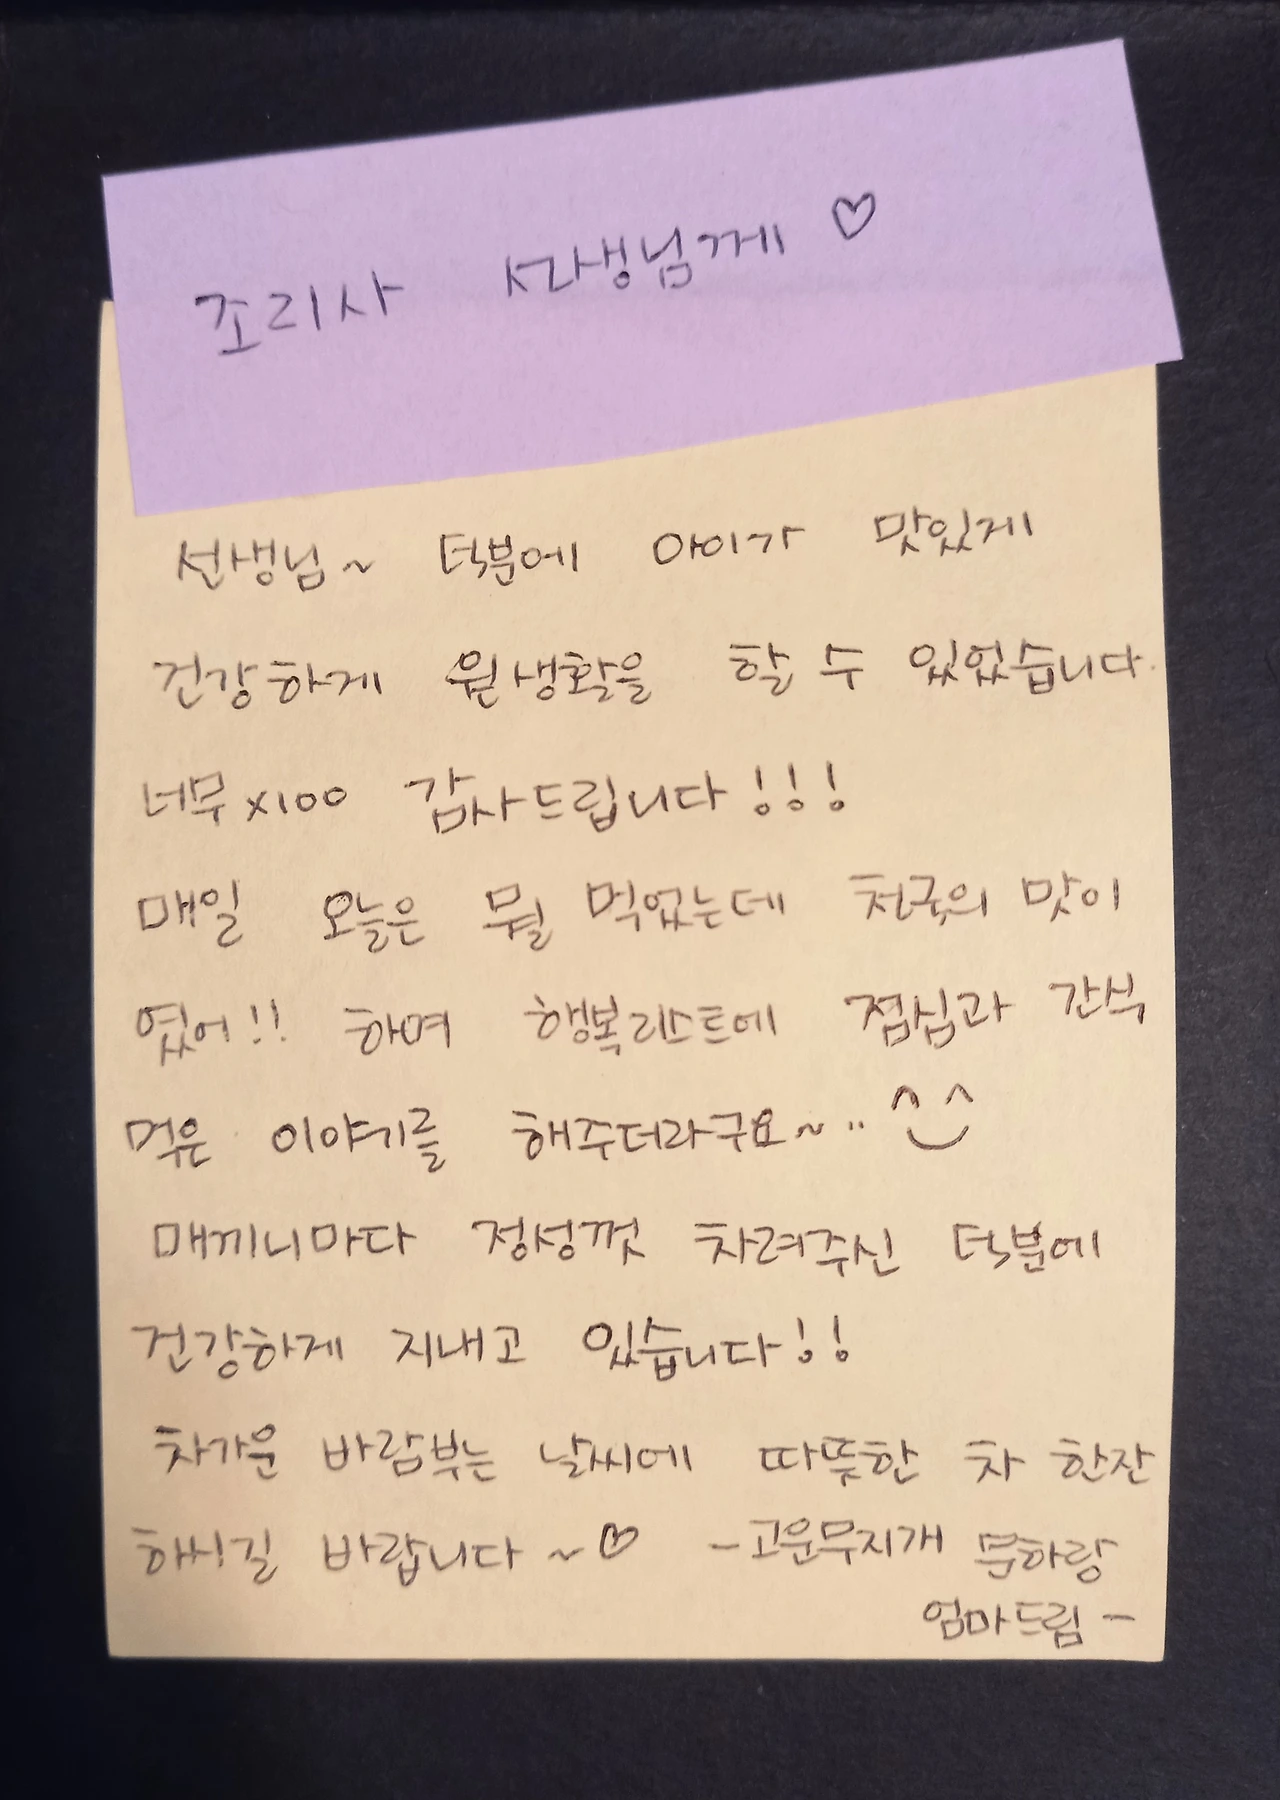 조리사 선생님께 ♡
선생님~ 덕분에 아이가 맛있게
건강하게 원생활을 할 수 있었습니다.
너무x100 감사드립니다!!!
매일 오늘은 뭘 먹었는데 천국의 맛이
였어!! 하며 행복리스트에 점심과 간식
먹은 이야기를 해주더라구요~..
매끼니마다 정성껏 차려주신 덕분에
건강하게 지내고 있습니다!!
차가운 바람부는 날씨에 따뜻한 차 한잔
하시길 바랍니다~♡ -고운무지개 문하랑
엄마드림-